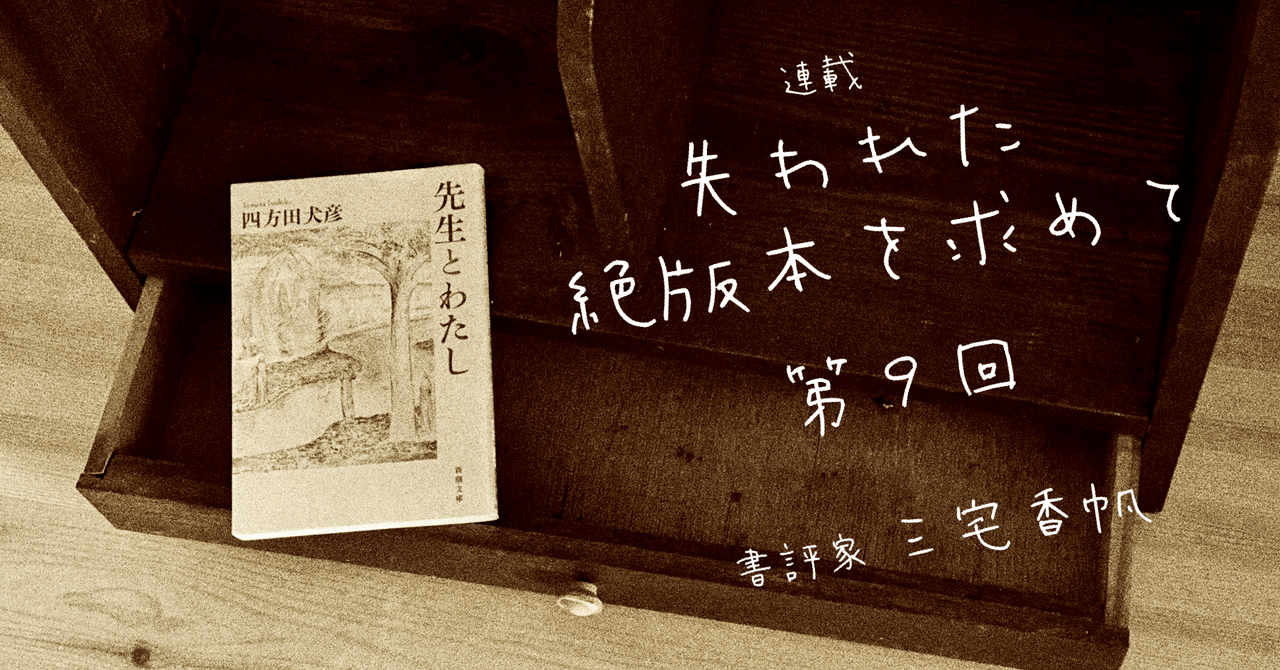 四方田犬彦
先生とわたし
新潮文庫
連載
失われた
絶版本を求めて
第9回
書評家 三宅香帆